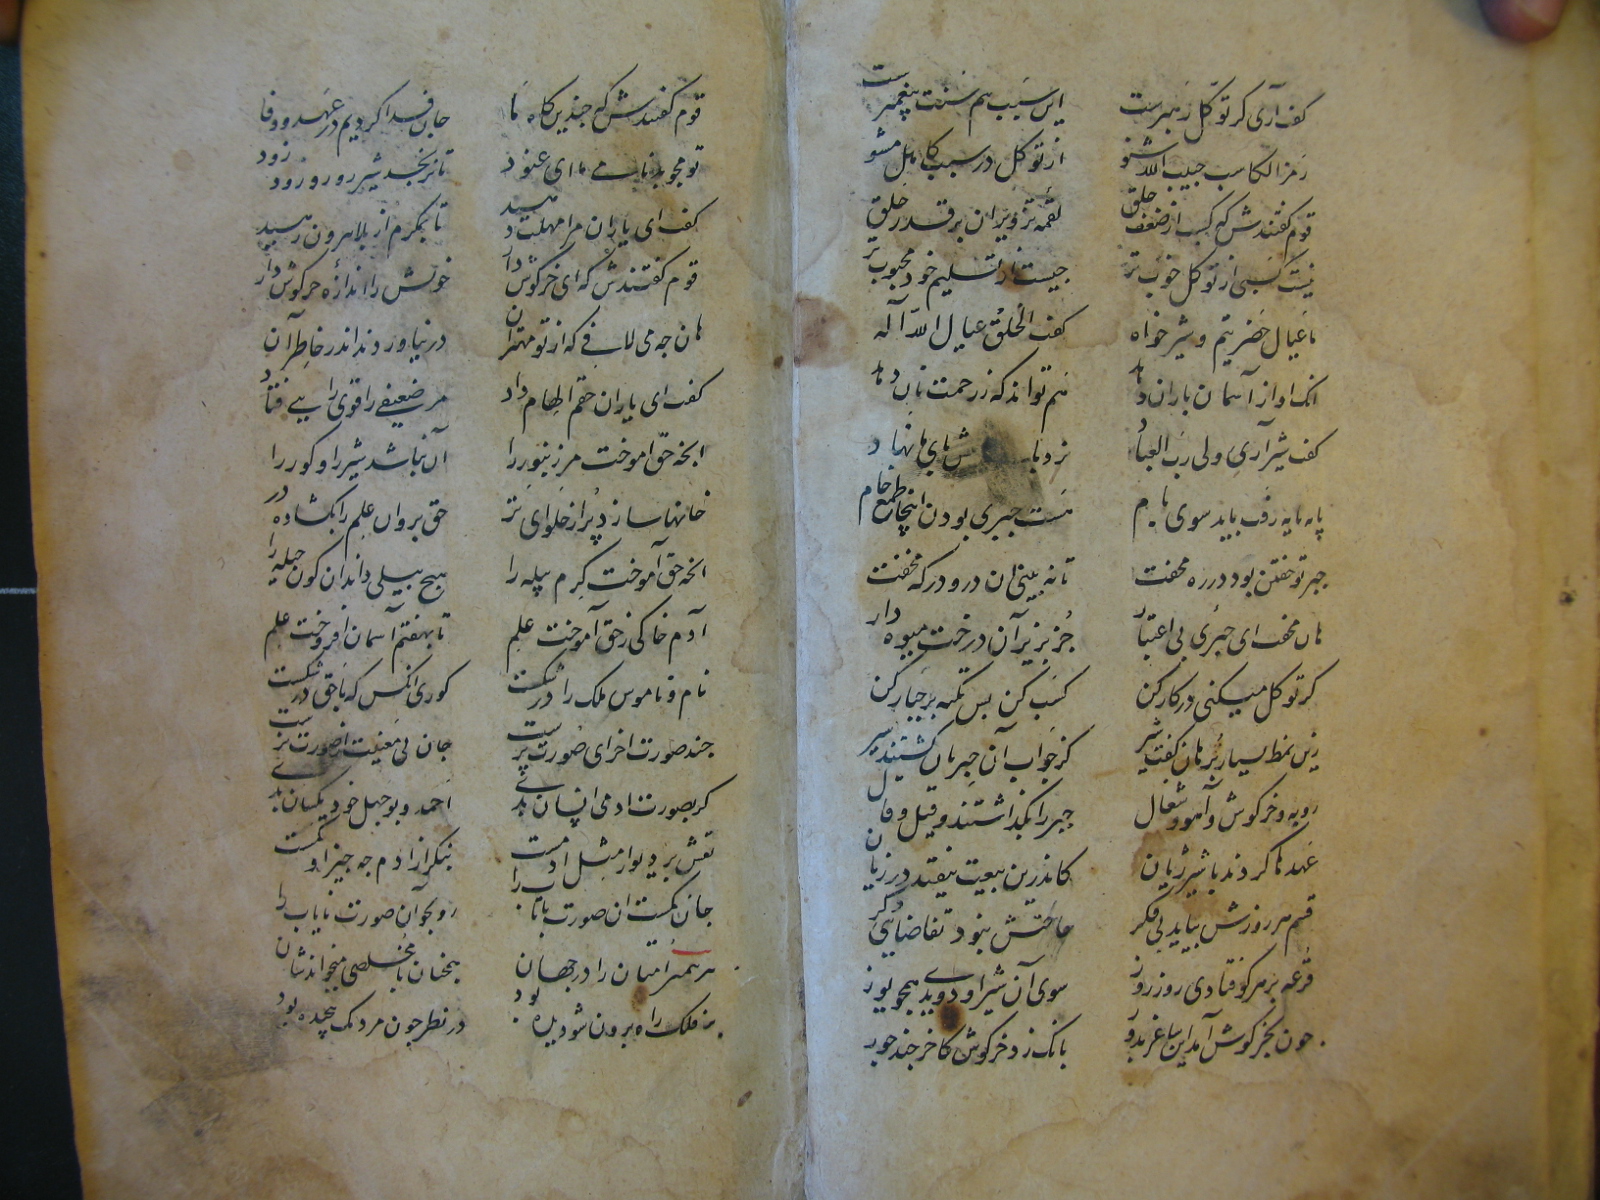 گفت آری گر توکل رهبرست این سبب هم سنت پیغمبرست
رمز الکاسب حبیب الله شنو از توکل در سبب کاهل مشو
قوم گفتندش که کسب از ضعف خلق لقمه تزویر دان بر قدر حلق
نیست کسبی از توکل خوب تر چیست از تسلیم خود محبوب تر
ما عیال حضرتیم و شیر خواه گفت الخلق عیال للاله
انک او از آسمان باران دهد هم تواند که ز رحمت نان دهد
گفت شیر آری ولی رب العباد نردبا ش پای ما نهاد
پایه پایه رفت باید سوی بام هست جبری بودن اینجا طمع خام
جبر تو خفتن بود در ره مخفت تا نه بینی ان در و درگه مخفت
هان مخف ای جبری بی اعتبار جز بزیر آن درخت میوه دار
گر توکل میکنی در کار کن کسب کن بس تکیه بر جبار کن
زین نمط بسیار برهان گفت شیر کز جواب آن جبریان گشتند سیر
روبه و خرگوش و آهو و شغال جبر را بگذاشتند و قیل و قال
عهدها کردند با شیر ژیان کاندرین بیعت نیفتد در زیان
قسم هر روزش بیاید بی فکر حاجتش نبود تقاضاهی دگر
قرعه بر هر کو فتادی روز روز سوی آن شیر او دویدی همچو یوز
چون بخرگوش آمد این ساغر بدور بانک زد خرگوش کاخر چند جور
قوم گفتندش که چندین گاه ما جان فدا کردیم در عهد و وفا
تو مجو بدنامی ما ای عنود تا نرنجد شیر رو رو زود زود
گفت ای یاران مرا مهلت دهید تا بمکرم از بلا بیرون رهید
قوم گفتندش که ای خرگوش دار خویش را اندازه خرگوش دار
هان چه می لافی که از تو مهتران در نیاوردند اندر خاطر آن
گفت ای یاران حقم الهام داد مر ضعیفی را قوی رایی فتاد
انچه حق اموخت مر زنبور را آن نباشد شیر را و گور را
خانها سازد پر از حلوای تر حق برو ان علم را بگشاده در
انچه حق آموخت کرم پیله را هیچ پیلی داند ان کون حیله را
آدم خاکی ز حق آموخت علم تا بهفتم آسمان افروخت علم
نام و ناموس ملک را در شکست کوری انکس که با حق در شکست
چند صورت اخر ای صورت پرست جان بی معنیت از صورت نرست
گر بصورت ادمی انسان بدی احمد و بوجهل خود یکسان بدی
نقش بر دیوار مثل ادمست بنگر از ادم چه چیز او کمست
جان کمست ان صورت با تاب را رو بجو ان صورت نایاب را
هر پیمبر امتان را در جهان همچنان با مخلصی میخواندشان
کز فلک راه برون شو دیده بود در نظر چون مردمک پیچیده بود